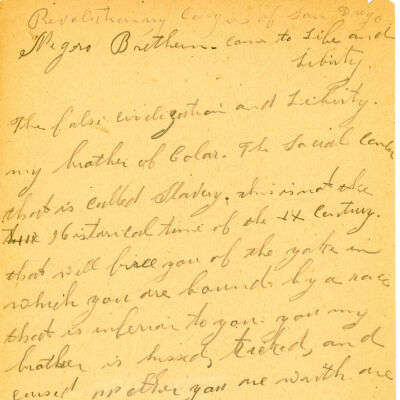 Revolutionary Congres of San Diego
Negro Brethern. come to Life and
Liberty.
The false civilization and Liberty.
my brother of Color. The Social Cancer
that is called Slavery. this is not the
Historical time of the IX Century.
that will free you of the yoke in
which you are bound by a race
that is inferior to you. you my
brother is hissed, tricked, and
cursed